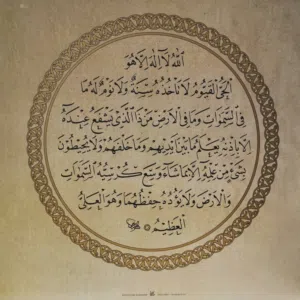 اللّٰهُ لَا إِلٰهَ إِلَّا هُوَ
الْحَيُّ الْقَيُّومُ لَا تَأْخُذُهُ سِنَةٌ وَلَا نَوْمٌ لَهُ مَا
فِي السَّمٰوَاتِ وَمَا فِي الْأَرْضِ مَنْ ذَا الَّذِي يَشْفَعُ عِنْدَهُ
إِلَّا بِإِذْنِهِ يَعْلَمُ مَا بَيْنَ أَيْدِيهِمْ وَمَا خَلْفَهُمْ وَلَا يُحِيطُونَ
بِشَيْءٍ مِنْ عِلْمِهِ إِلَّا بِمَا شَاءَ وَسِعَ كُرْسِيُّهُ السَّمٰوَاتِ
وَالْأَرْضَ وَلَا يَئُودُهُ حِفْظُهُمَا وَهُوَ الْعَلِيُّ
الْعَظِيمُ